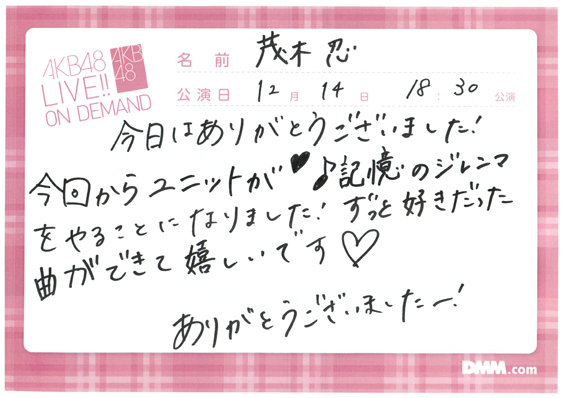 AKB48
LIVE!!
ON DEMAND
AKB
48
名前 茂木 忍
公演日 12月 14日 18:30 公演
今日はありがとうございました!
今回からユニットが♥♪記憶のジレンマ
をやることになりました! ずっと好きだった
曲ができて嬉しいです♡
ありがとうございましたー!
DMM.com